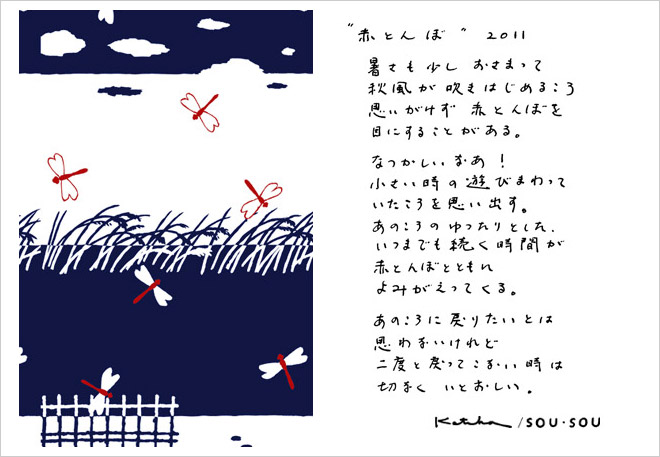 "赤とんぼ" 2011
暑さも少し おさまって
秋風が吹きはじめるころ
思いがけず 赤とんぼを
目にすることがある。
なつかしいなあ!
小さい時の遊びまわって
いたころを思い出す。
あのころのゆったりとした、
いつまでも続く時間が
赤とんぼとともに
よみがえってくる。
あのころに戻りたいとは
思わないけれど
二度と戻ってこない時は
切なく いとおしい。
Katsuji / SOU・SOU